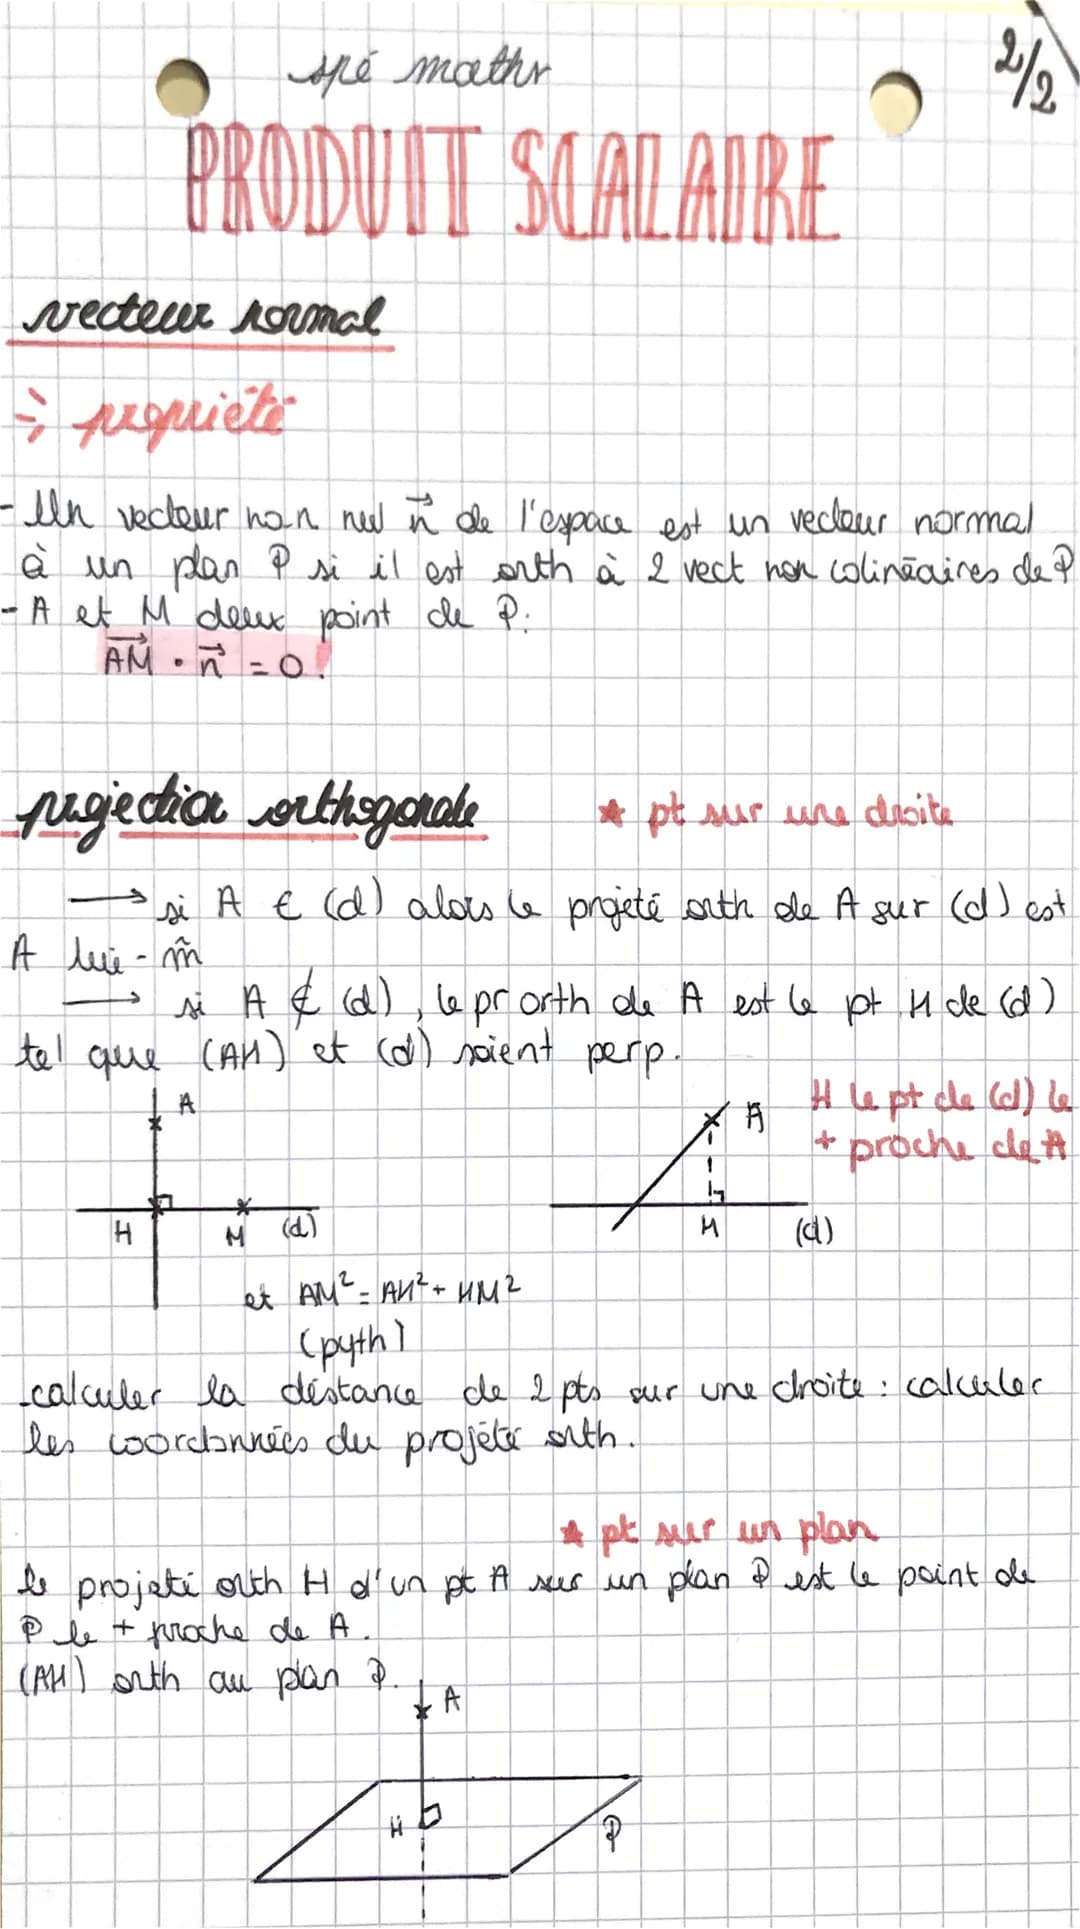 spé maths
2/2
PRODUIT SCALAIRE
vecteur normal
propriété
- Un vecteur non nul n⃗ de l'espace est un vecteur normal
à un plan P si il est orth à 2 vect non colinéaires de P
- A et M deux point de P:
AM⃗ · n⃗ = 0 !
projection orthogonale
* pt sur une droite
→ si A ∈ (d) alors le projeté orth de A sur (d) est
A lui-m̂
→ si A ∉ (d), le pr orth de A est le pt H de (d)
tel que (AH) et (d) soient perp.
H le pt de (d) le
+ proche de A
A
H M (d)
A
H (d)
et AM² = AH² + HM²
(pyth)
calculer la distance de 2 pts sur une droite : calculer
les coordonnées du projété orth.
* pt sur un plan
le projeté orth H d'un pt A sur un plan P est le point de
P le + proche de A.
(AH) orth au plan P.
A
H
P